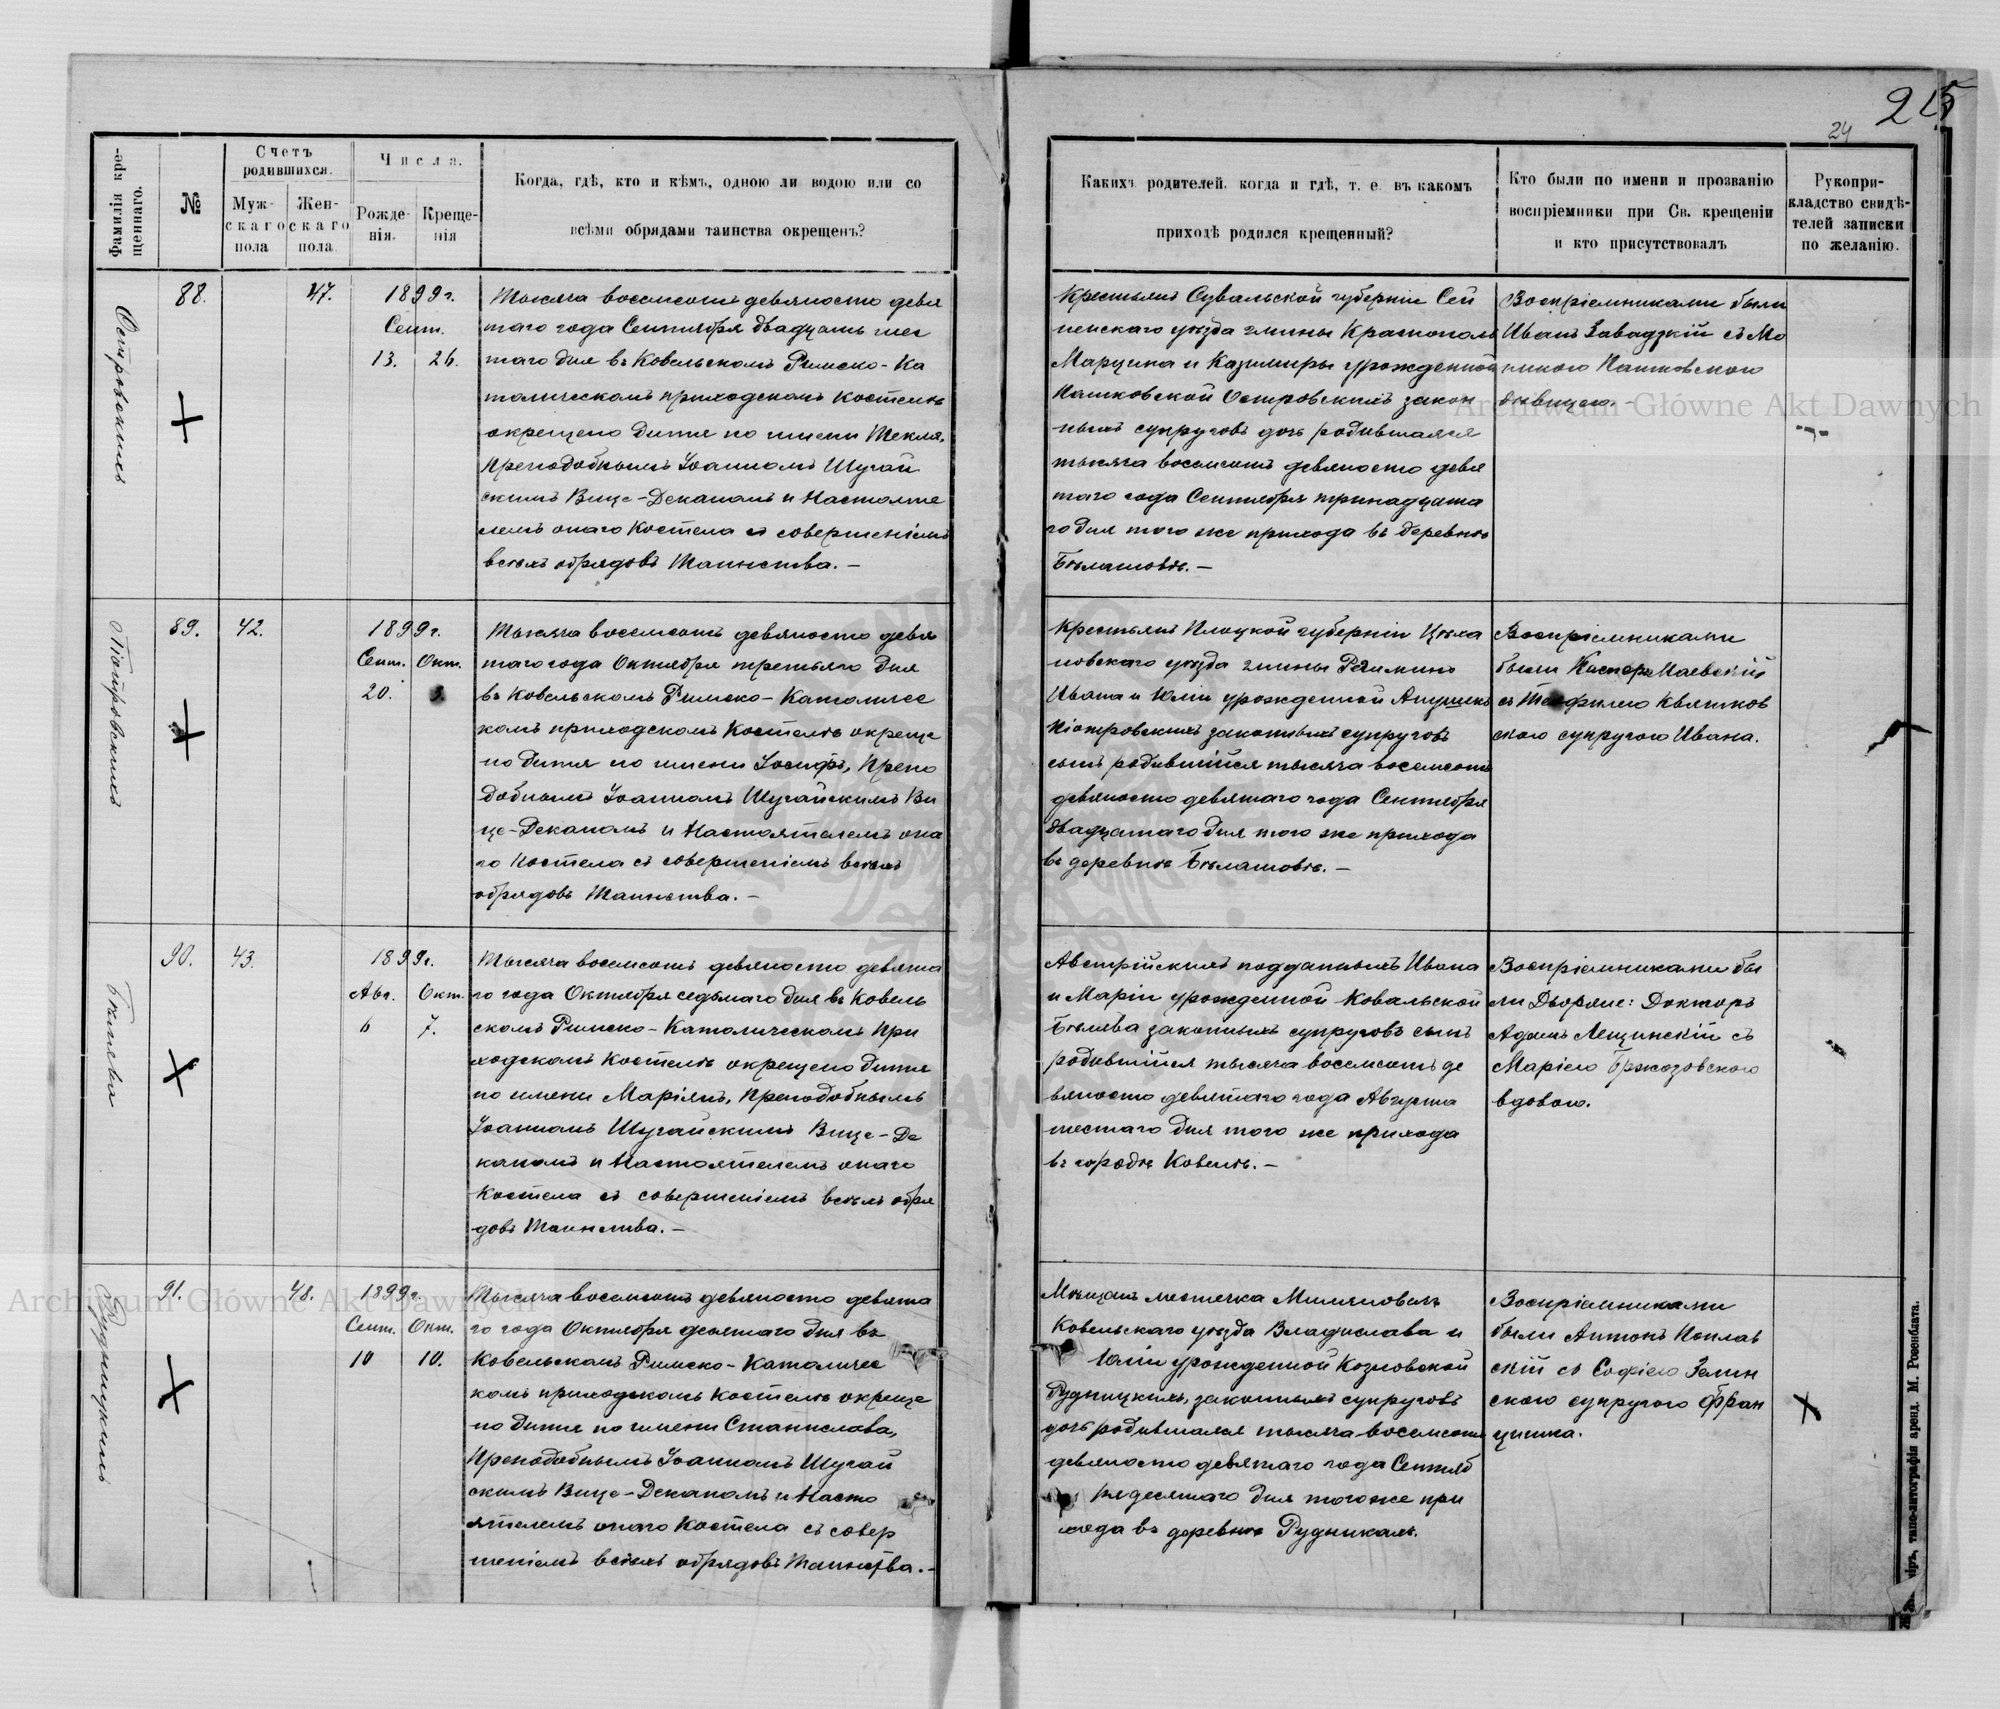 25
24
Фамилія кре-
щеннаго.
№
Счетъ
родившихся.
Муж-
скаго
пола
Жен-
скаго
пола.
Числа.
Рожде-
нія.
Креще-
нія
Когда, гдѣ, кто и кѣмъ, одною ли водою или со
всѣми обрядами таинства окрещенъ?
Какихъ родителей, когда и гдѣ, т. е. въ какомъ
приходѣ родился крещенный?
Кто были по имени и прозванію
воспріемники при Св. крещеніи
и кто присутствовалъ
Рукопри-
кладство свидѣ-
телей записки
по желанію.
Островскихъ
88.
47.
1899 г.
Сент.
13. 26.
Тысяча восемсотъ девяносто девя
таго года Сентября двадцать шес
таго дня въ Ковельскомъ Римско-Ка
толическомъ приходскомъ Костелѣ
окрещено дитя по имени Текля,
Преподобнымъ Іоанномъ Шугай
скимъ Вице-Деканомъ и Настояте
лемъ онаго Костела съ совершеніемъ
всѣхъ обрядовъ Таинства.-
Крестьянъ Сувальской губерніи Сей
ненскаго уѣзда гмины Краснополь
Марцина и Казимиры урожденной
Пашковской Островскихъ закон
ныхъ супруговъ дочь родившаяся
тысяча восемсотъ девяносто девя
таго года Сентября тринадцата
го дня того же прихода въ деревнѣ
Бѣлашовѣ.-
Воспріемниками были
Иванъ Завадзкій съ Мо
никою Пашковскою
дѣвицею.-
Піотровскихъ
89.
42.
1899 г.
Сент. Окт.
20. 3.
Тысяча восемсотъ девяносто девя
таго года Октября третьяго дня
въ Ковельскомъ Римско-Католичес
комъ приходскомъ Костелѣ окреще
но дитя по имени Іосифъ, Препо
добнымъ Іоанномъ Шугайскимъ Ви
це-Деканомъ и Настоятелемъ она
го Костела съ совершеніемъ всѣхъ
обрядовъ Таинства.-
Крестьянъ Плоцкой губерніи Цѣха
новскаго уѣзда гмины
Ивана и Юліи урожденной
Піотровскихъ законныхъ супруговъ
сынъ родившійся тысяча восемсотъ
девяносто девятаго года Сентября
двадцатаго дня того же прихода
въ деревнѣ Бѣлашовѣ.-
Воспріемниками
были Касперъ Маевскій
съ Теофилею Квятков
скою супругою Ивана.
90.
43.
1899 г.
Авг. Окт.
6 7.
Тысяча восемсотъ девяносто девята
го года Октября седьмаго дня въ Ковель
скомъ Римско-Католическомъ При
ходскомъ Костелѣ окрещено дитя
по имени Маріянъ, Преподобнымъ
Іоанномъ Шугайскимъ Вице-Де
каномъ и Настоятелемъ онаго
Костела съ совершеніемъ всѣхъ обря
довъ Таинства.-
Австрійскихъ подданныхъ Ивана
и Маріи урожденной Ковальской
законныхъ супруговъ сынъ
родившійся тысяча восемсотъ де
вяносто девятаго года Августа
шестаго дня того же прихода
въ городѣ Ковелѣ.-
Воспріемниками бы
ли Дворяне: Докторъ
Адамъ Лещинскій съ
Маріею Бржозовскою
вдовою.
Рудницкихъ
91.
48.
1899 г.
Сент. Окт.
10 10.
Тысяча восемсотъ девяносто девята
го года Октября десятаго дня въ
Ковельскомъ Римско-Католичес
комъ приходскомъ Костелѣ окреще
но дитя по имени Станислава,
Преподобнымъ Іоанномъ Шугай
скимъ Вице-Деканомъ и Насто
ятелемъ онаго Костела съ совер
шеніемъ всѣхъ обрядовъ Таинства.-
Мѣщанъ мѣстечка Миляновичъ
Ковельскаго уѣзда Владислава и
Юліи урожденной Козловской
Рудницкихъ, законныхъ супруговъ
дочь родившаяся тысяча восемсотъ
девяносто девятаго года Сентяб
ря десятаго дня того же при
хода въ деревнѣ Рудникахъ.
Воспріемниками
были Антонъ Поплав
скій съ Софіею Зелин
скою супругою Фран
цишка.
типо-литографія аренд. М. Розенблата.
Archiwum Główne Akt Dawnych
Archiwum Główne Akt Dawnych